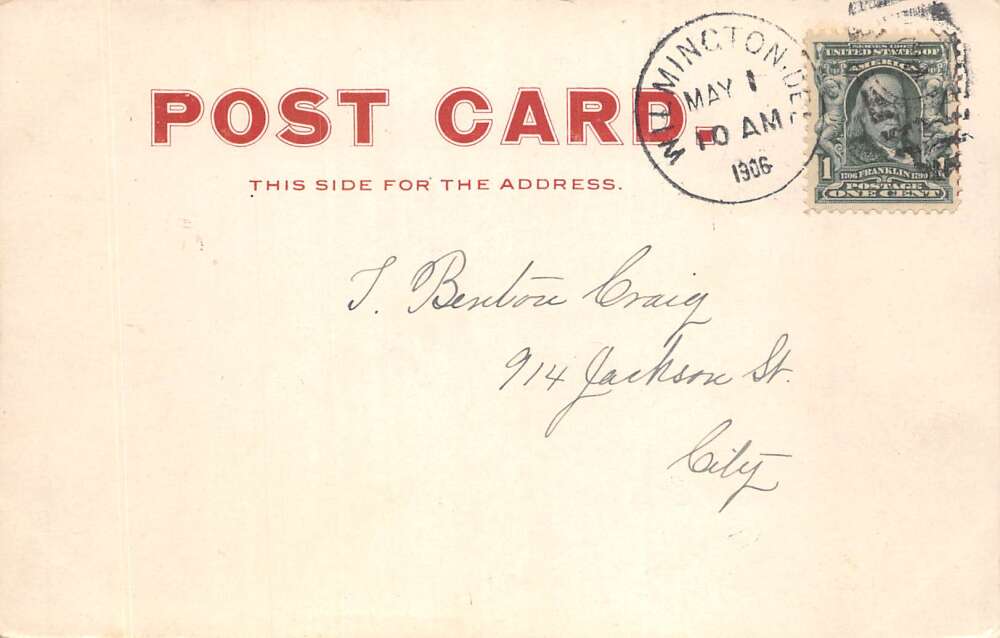 POST CARD.
THIS SIDE FOR THE ADDRESS.
WILMINGTON·DEL.
MAY 1
10 AM
1906
SERIES 1902
UNITED STATES OF
AMERICA
1
1706 FRANKLIN 1790
POSTAGE
ONE CENT
T. Benton Craig
914 Jackson St.
City